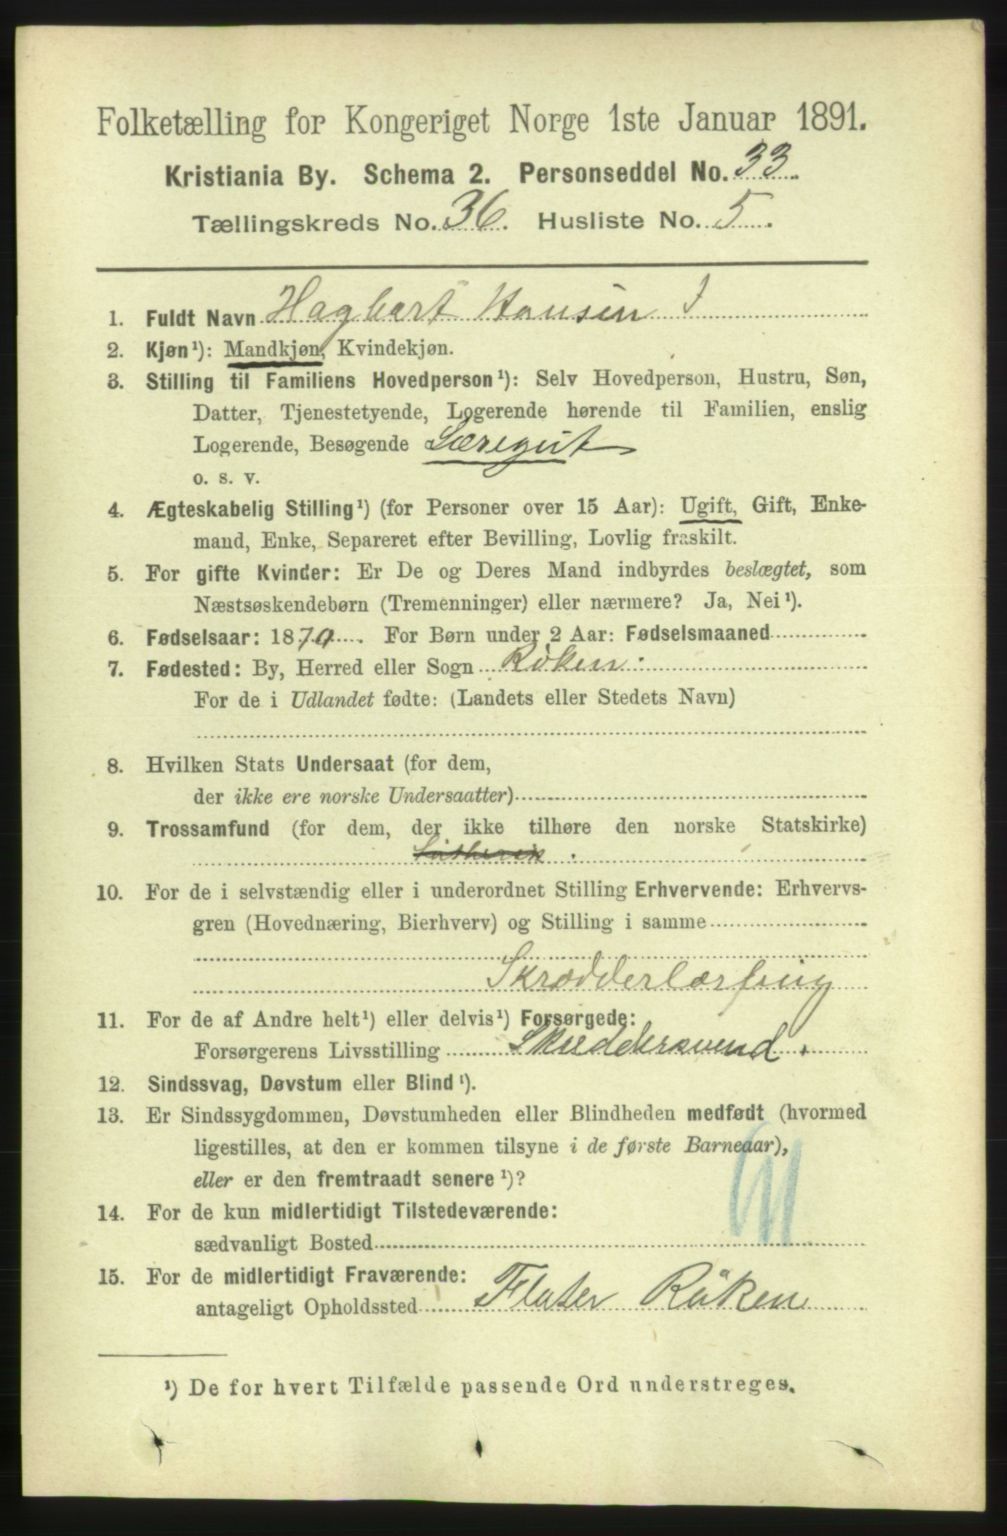 Folketælling for Kongeriget Norge 1ste Januar 1891.
Kristiania By. Schema 2. Personseddel No. 33.
Tællingskreds No. 36. Husliste No. 5.
1. Fuldt Navn Hagbart Hansen
2. Kjøn¹): Mandkjøn, Kvindekjøn.
3. Stilling til Familiens Hovedperson¹): Selv Hovedperson, Hustru, Søn,
Datter, Tjenestetyende, Logerende hørende til Familien, enslig
Logerende, Besøgende Læregut
o. s. v.
4. Ægteskabelig Stilling¹) (for Personer over 15 Aar): Ugift, Gift, Enke-
mand, Enke, Separeret efter Bevilling, Lovlig fraskilt.
5. For gifte Kvinder: Er De og Deres Mand indbyrdes beslægtet, som
Næstsøskendebørn (Tremenninger) eller nærmere? Ja, Nei¹).
6. Fødselsaar: 1870. For Børn under 2 Aar: Fødselsmaaned
7. Fødested: By, Herred eller Sogn Røken.
For de i Udlandet fødte: (Landets eller Stedets Navn)
8. Hvilken Stats Undersaat (for dem,
der ikke ere norske Undersaatter)
9. Trossamfund (for dem, der ikke tilhøre den norske Statskirke)
10. For de i selvstændig eller i underordnet Stilling Erhvervende: Erhvervs-
gren (Hovednæring, Bierhverv) og Stilling i samme
Skrædderlærling
11. For de af Andre helt¹) eller delvis¹) Forsørgede:
Forsørgerens Livsstilling Skreddersvend.
12. Sindssvag, Døvstum eller Blind¹).
13. Er Sindssygdommen, Døvstumheden eller Blindheden medfødt (hvormed
ligestilles, at den er kommen tilsyne i de første Barneaar),
eller er den fremtraadt senere¹)?
14. For de kun midlertidigt Tilstedeværende:
sædvanligt Bosted
15. For de midlertidigt Fraværende:
antageligt Opholdssted Røken
¹) De for hvert Tilfælde passende Ord understreges.